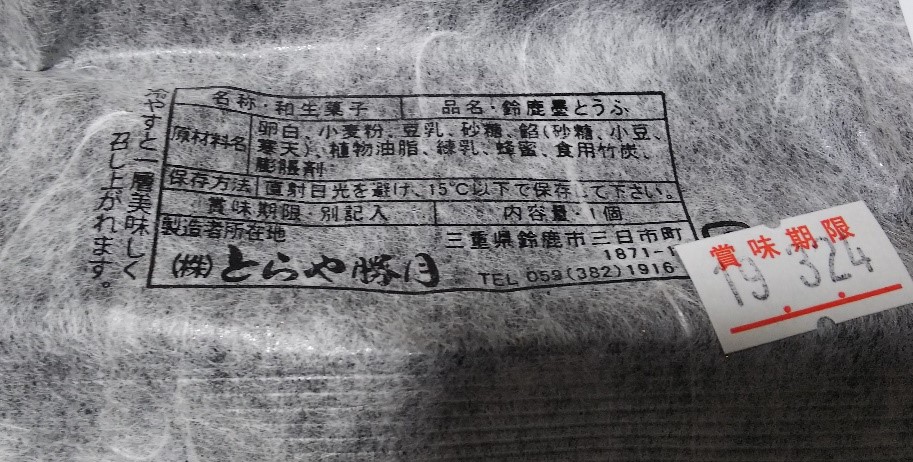 名称・和生菓子 品名・鈴鹿墨とうふ
原材料名 卵白、小麦粉、豆乳、砂糖、餡(砂糖、小豆、
寒天)、植物油脂、練乳、蜂蜜、食用竹炭、
膨脹剤
保存方法 直射日光を避け、15℃以下で保存して下さい。
賞味期限・別記入 内容量・1個
製造者所在地 三重県鈴鹿市三日市町
1871-1
(株)とらや勝月 TEL 059(382)1916
冷やすと一層美味しく
召し上がれます。
賞味期限
19.3.24